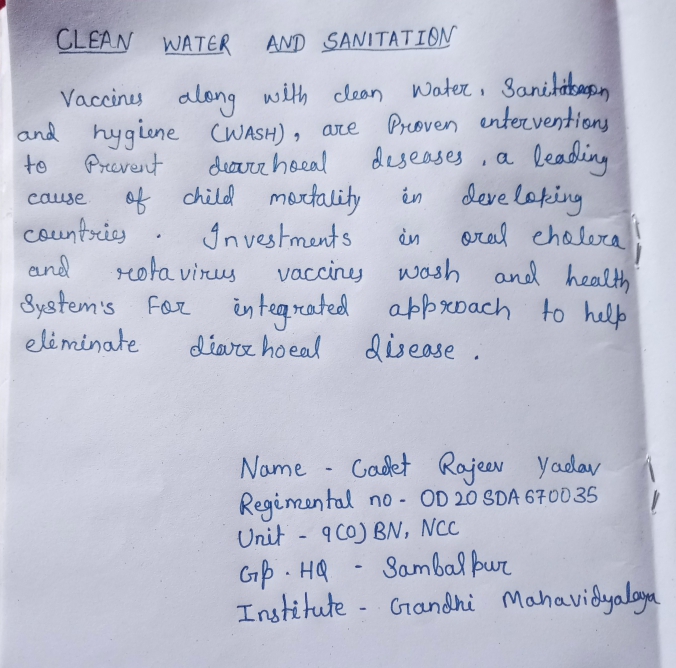 CLEAN WATER AND SANITATION
Vaccines along with clean water, Sanitation
and hygiene (WASH), are Proven enterventions
to Prevent diarrhoeal deseases, a leading
cause of child mortality in developing
countries. Investments in oral cholera
and rotavirus vaccines wash and health
System's For integrated approach to help
eliminate diarrhoeal disease.
Name - Cadet Rajeev Yadav
Regimental no - OD20SDA670035
Unit - 9(O)BN, NCC
Gp. HQ - Sambalpur
Institute - Gandhi Mahavidyalaya